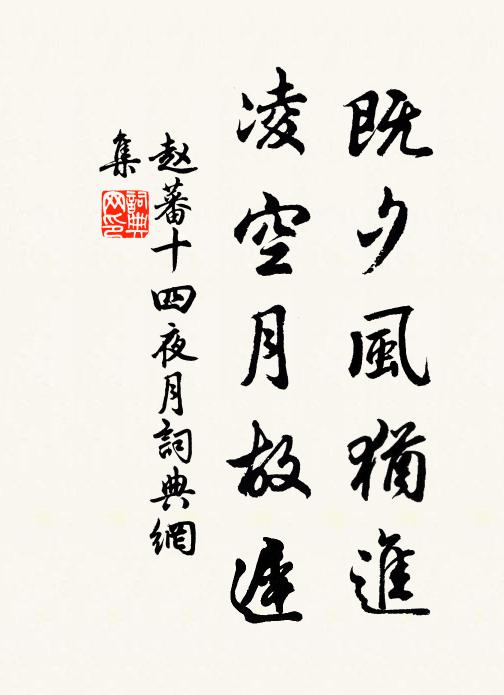 既夕風猶進
凌空月故遲
赵蕃十四夜月詞典網
集
詞典网印